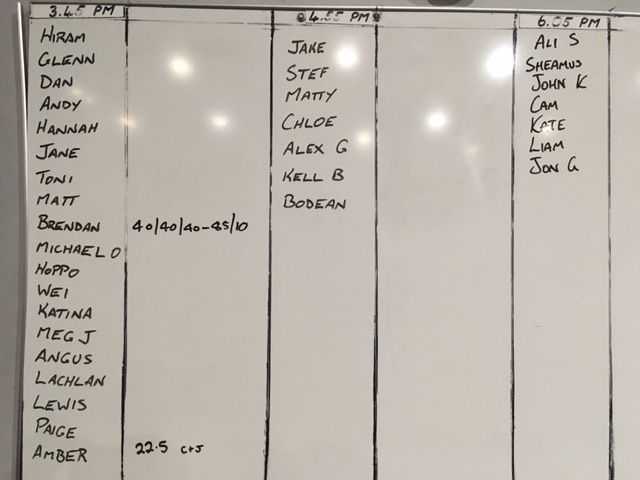 3.45 PM
HIRAM
GLENN
DAN
ANDY
HANNAH
JANE
TONI
MATT
BRENDAN 40/40/40-85/10
MICHAEL O
HOPPO
WEI
KATINA
MEG J
ANGUS
LACHLAN
LEWIS
PAIGE
AMBER 22.5 C+J
4.55 PM
JAKE
STEF
MATTY
CHLOE
ALEX G
KELL B
BODEAN
6.05 PM
ALI S
SHEAMUS
JOHN K
CAM
KATE
LIAM
JON G